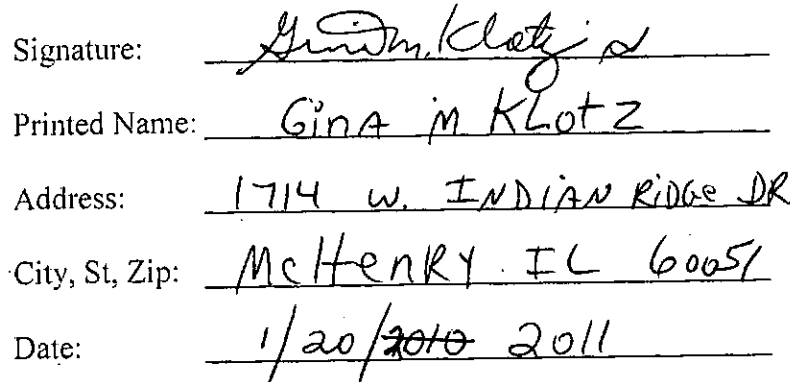 Signature: Gina M. Klotz
Printed Name: Gina M Klotz
Address: 1714 W. INDIAN RiDGe DR
City, St, Zip: McHenRY IL 60051
Date: 1/20/2010 2011